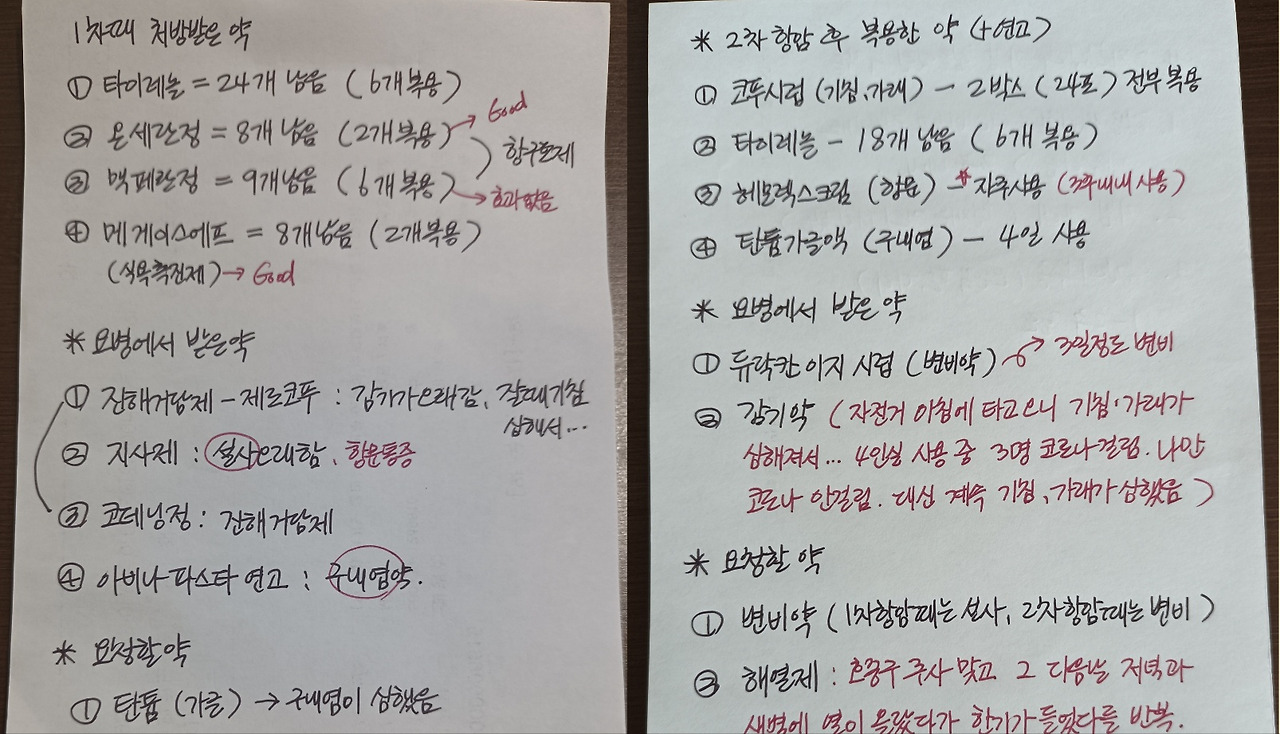 1차때 처방받은 약
① 타이레놀 = 24개 남음 (6개복용)
② 온세란정 = 8개 남음 (2개복용) → Good
③ 맥페란정 = 9개남음 (6개복용) → 효과없음
항구토제
④ 메게이스에프 = 8개남음 (2개복용)
(식욕촉진제) → Good
* 요병에서 받은약
① 진해거담제 - 제로코푸 : 감기가오래감, 잘때기침
심해서...
② 지사제 : 설사오래함, 항문통증
③ 코데닝정 : 진해거담제
④ 아비나파스타 연고 : 구내염약.
* 요청할약
① 탄튬 (가글) → 구내염이 심했음
* 2차 항암 후 복용한 약 (+연고)
① 코푸시럽 (기침, 가래) - 2박스 (24포) 전부복용
② 타이레놀 - 18개 남음 (6개복용)
③ 헤모렉스크림 (항문) - * 자주사용 (3주내내 사용)
④ 탄튬가글액 (구내염) - 4일 사용
* 요병에서 받은 약
① 듀락칸 이지 시럽 (변비약) → 3일정도 변비
② 감기약 (자전거 아침에 타고오니 기침·가래가
심해져서... 4인실 사용 중 3명 코로나걸림. 나만
코로나 안걸림. 대신 계속 기침, 가래가 심했음)
* 요청할 약
① 변비약 (1차항암때는 설사, 2차항암때는 변비)
② 해열제 : 호중구 주사 맞고 그 다음날 저녁과
새벽에 열이 올랐다가 한기가 들었다를 반복.